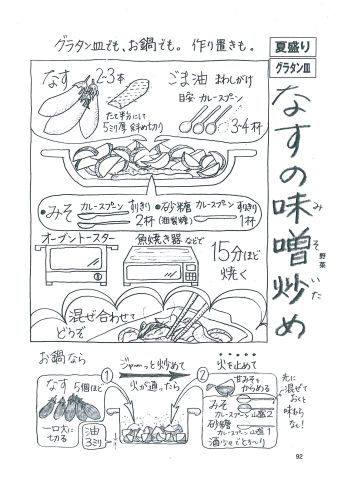 グラタン皿でも、お鍋でも。作り置きも。
夏盛り
グラタン皿
なすの味噌炒め
みそ
いた
野菜
なす 2~3本
たて半分にして
5ミリ厚 斜め切り
ごま油 まわしがけ
目安 カレースプーン
3~4杯
●みそ カレースプーン すりきり
2杯
●砂糖 カレースプーン すりきり
(粗製糖) 1杯
オーブントースター
魚焼き器などで
15分ほど
焼く
混ぜ合わせて
どうぞ
お鍋なら
なす 5個ほど
一口大に
切る
油
3ミリ
1
ジャーっと炒めて
火が通ったら
2
火を止めて
甘みそを
からめる
みそ
カレースプーン 山盛2
砂糖
カレースプーン 山盛1
酒少々でとろ~り
先に
混ぜて
おくと
味むら
なし!
92